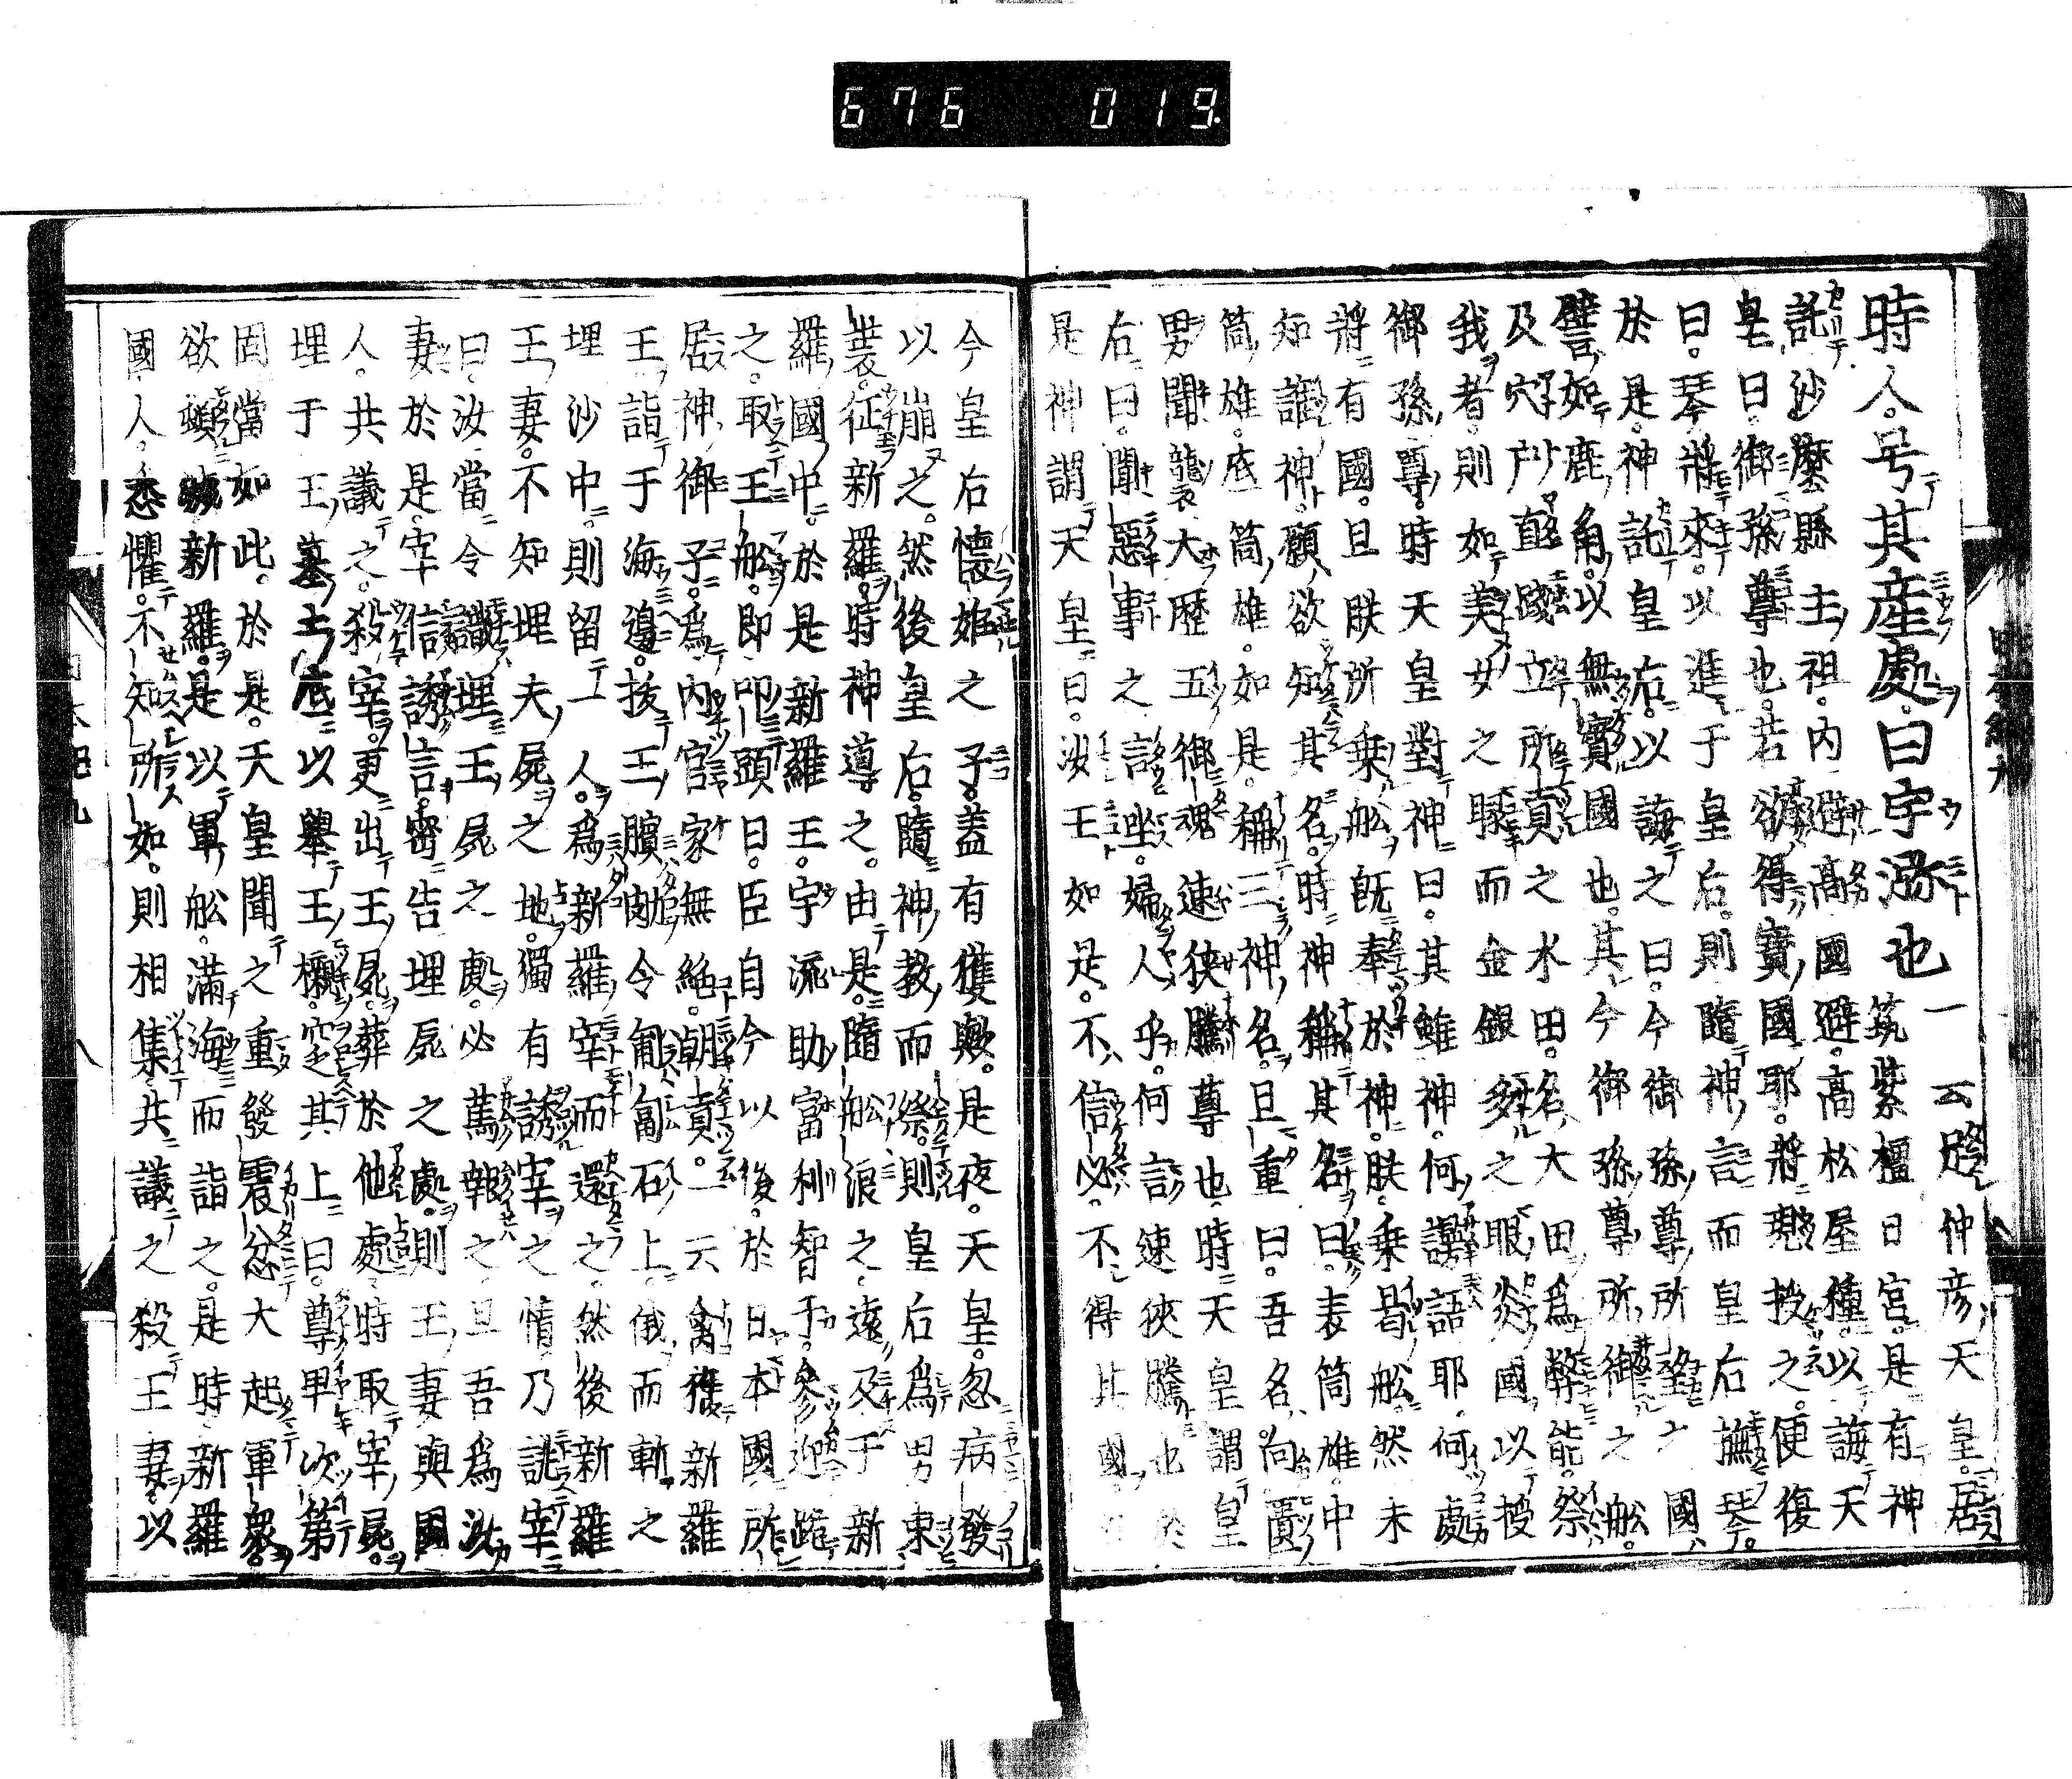 676 019.
時人。号其産處。曰宇瀰也
一云。足仲彦天皇。居
筑紫橿日宮。是有神
託沙麼縣主祖。内避高國避。高松屋種。以誨天
皇曰。御孫尊也。若欲得寶國耶。將現授之。便復
曰。琴將來。以進于皇后。則隨神言。而皇后撫琴。
於是。神託皇后。以誨之曰。今御孫尊。所望之國。
譬如鹿角。以無實國也。其今御孫尊。所御之船。
及穴戸直踐立所貢之水田。名大田。爲幣能。祭
我者。則如美女之睩。而金銀多之眼炎國。以授
御孫尊。時天皇對神曰。其雖神。何謾語耶。何處
將有國。且朕所乗船。既奉於神。朕乗曷船。然未
知誰神。願欲知其名。時神稱其名曰。表筒雄。中
筒雄。底筒雄。如是稱三神名。且重曰。吾名。向匱
男聞襲大歴五御魂速狹騰尊也。時天皇謂皇
后曰。聞惡事之言坐。婦人乎。何言速狹騰也。於
是神謂天皇曰。汝王如是。不信必。不得其國。
今皇后懷姙之子。蓋有獲歟。是夜。天皇。忽病發
以崩之。然後皇后。隨神教而祭。則皇后爲男束
裝。征新羅。時神導之。由是。隨船浪之。遠及于新
羅國中。於是新羅王。宇流助富利智干。參迎跪
之。取王船。即叩頭曰。臣自今以後。於日本國所
居神御子。爲内官家無絶。朝貢。一云禽獲新羅
王。詣于海邊。拔王臏肋。令匍匐石上。俄而斬之
埋沙中。則留一人。爲新羅宰而還之。然後新羅
王妻。不知埋夫屍之地。獨有誘宰之情。乃誂宰
曰。汝當令識埋王屍之處。必篤報之。且吾爲汝
妻。於是。宰信誘言。密告埋屍之處。則王妻與國
人。共議之。殺宰。更出王屍。葬於他處。時取宰屍。
埋于王墓土底。以擧王櫬。窆其上曰。尊卑次第。
固當如此。於是。天皇聞之。重發震忿。大起軍衆。
欲頓滅新羅。是以軍船。滿海而詣之。是時新羅
國人。悉懼。不知所如。則相集。共議之殺王妻。以